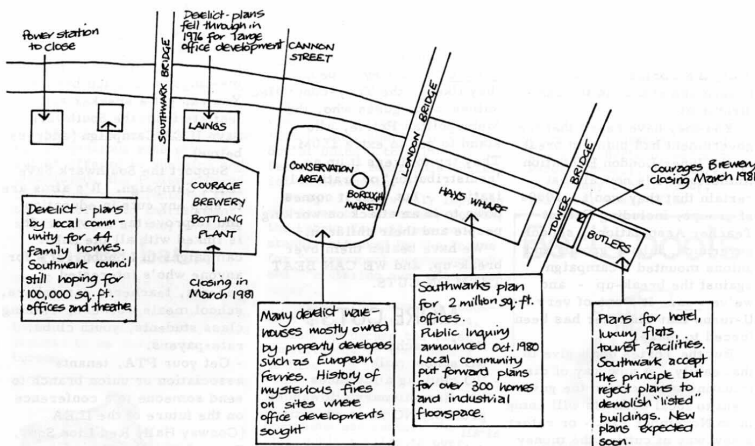 Power station
to close
SOUTHWARK BRIDGE
Derelict - plans
fell through in
1976 for large
office development
CANNON
STREET
LAINGS
LONDON BRIDGE
CONSERVATION
AREA
BOROUGH
MARKET
HAYS WHARF
TOWER BRIDGE
Courages Brewery
closing March 1981
BUTLERS
COURAGE
BREWERY
BOTTLING
PLANT
Closing in
March 1981
Derelict - plans
by local comm -
unity for 44
family homes.
Southwark council
still hoping for
100,000 sq. ft.
offices and theatre.
Many derelict ware-
houses mostly owned
by property developes
such as European
Ferries. History of
mysterious fires
on sites where
office developments
sought
Southwarks plan
for 2 million sq. ft.
offices.
Public Inquiry
announced Oct. 1980
Local community
put forward plans
for over 300 homes
and industrial
floorspace.
Plans for hotel,
luxury flats,
tourist facilities.
Southwark accept
the principle but
reject plans to
demolish "listed"
buildings. New
plans expected
soon.